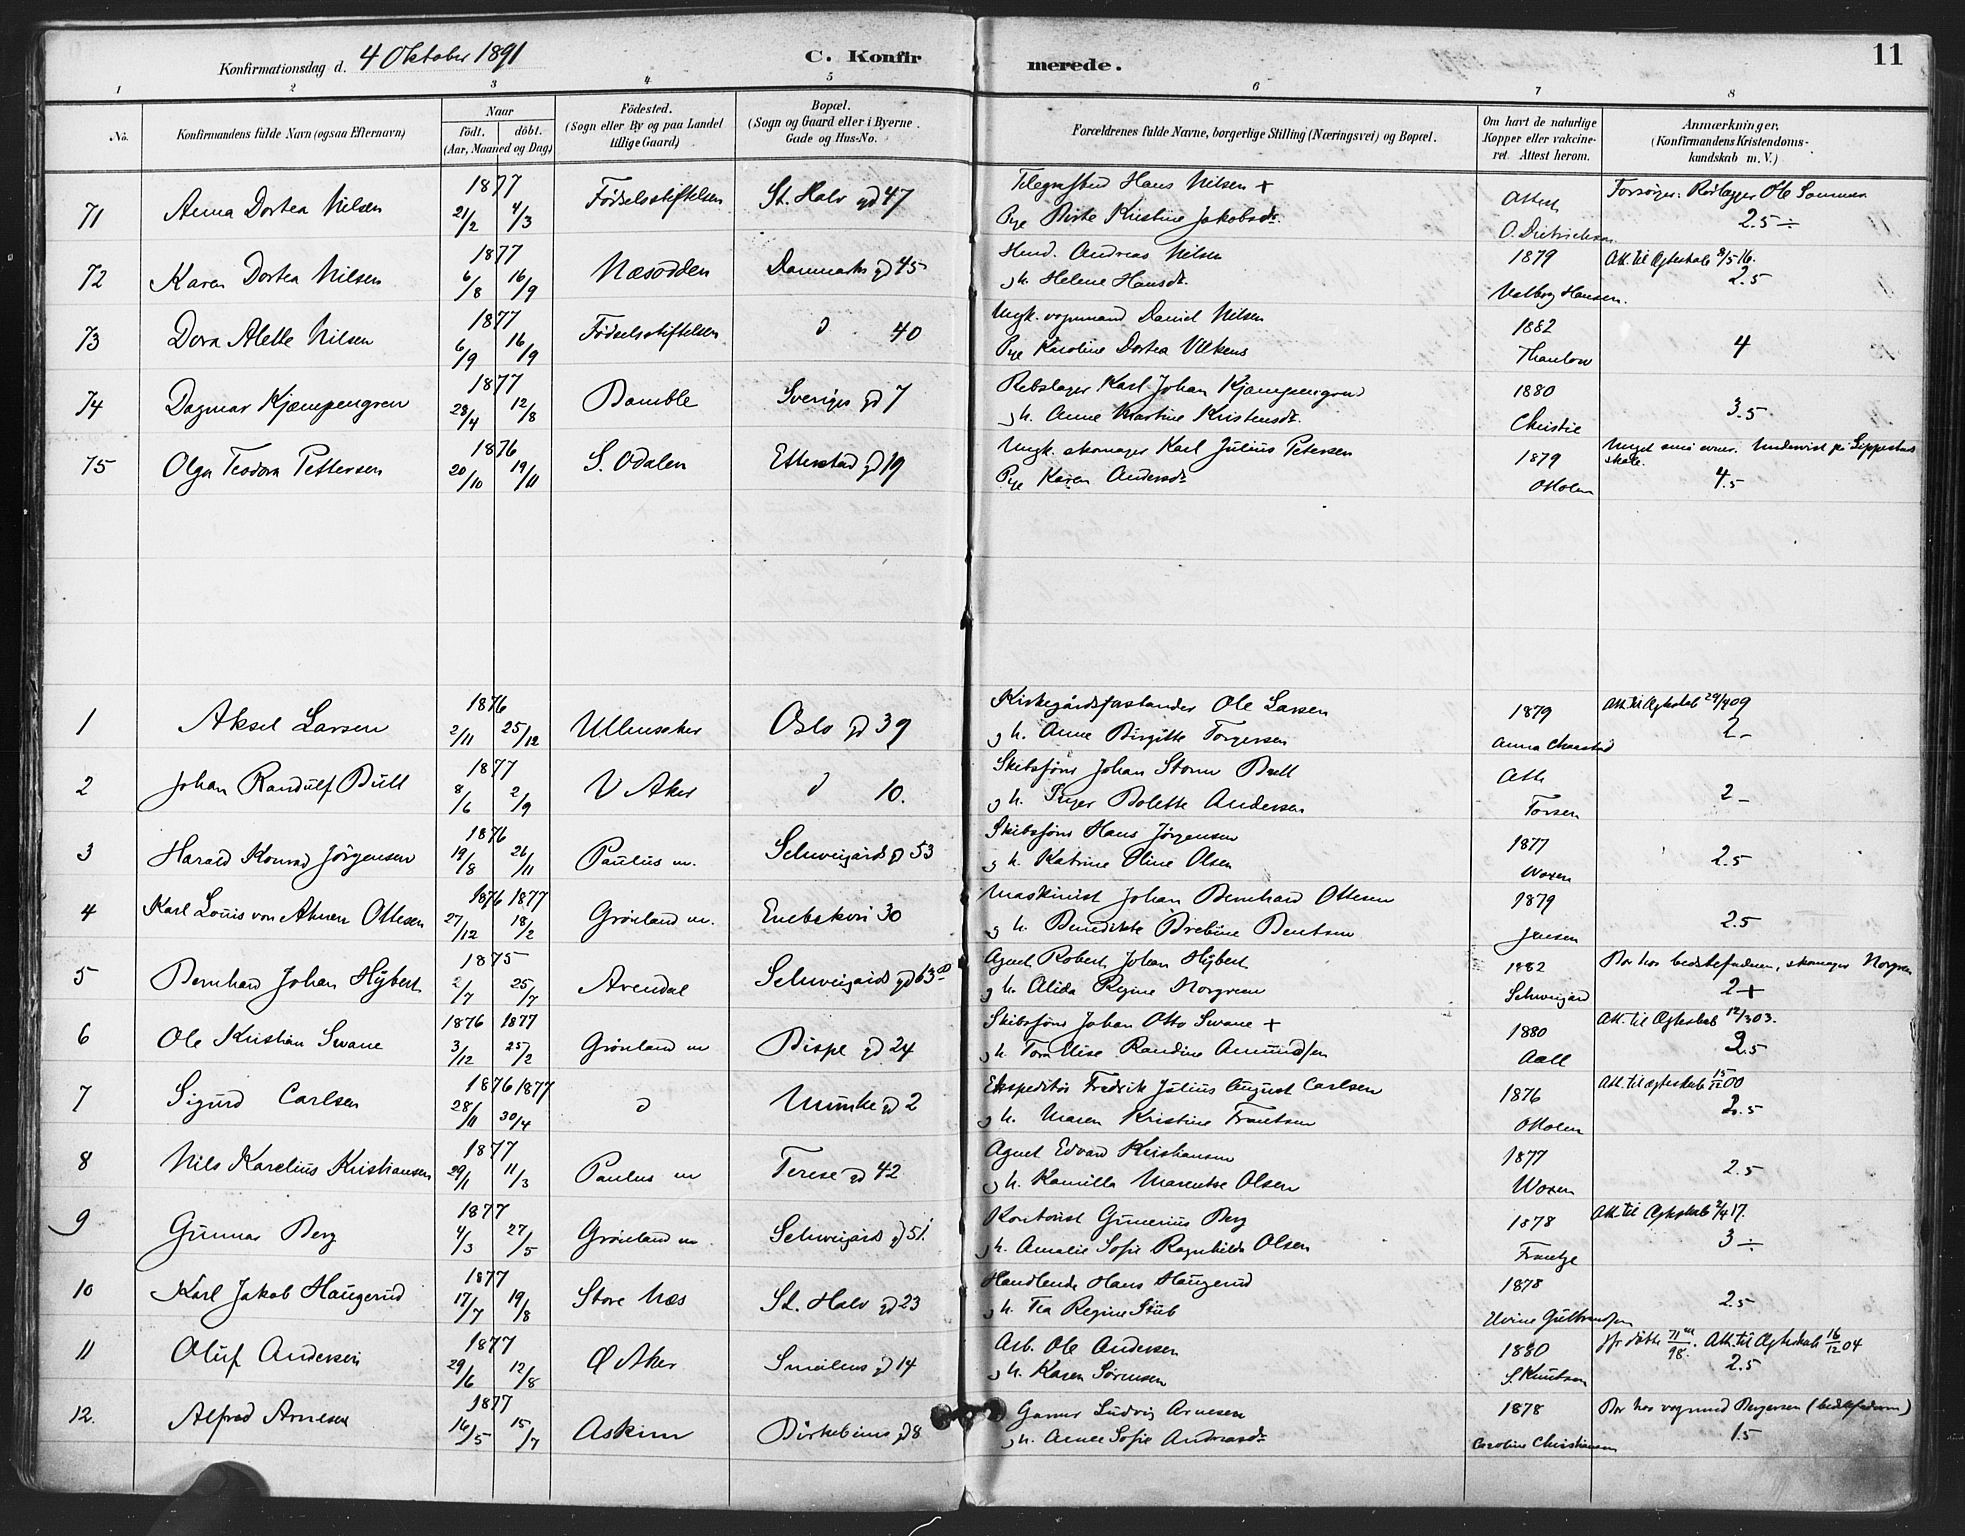 Konfirmationsdag d. 4 Oktober 1891 C. Konfirmerede. 11
1 2 3 4 5 6 7 8
No. Konfirmandens fulde Navn (ogsaa Efternavn) Naar födt. döbt. (Aar, Maaned og Dag) Födested. (Sogn eller By og paa Landet tillige Gaard) Bopæl. (Sogn og Gaard eller i Byerne Gade og Hus-No. Forældrenes fulde Navne, borgerlige Stilling (Næringsvei) og Bopæl. Om havt de naturlige Kopper eller vakcineret. Attest herom. Anmærkninger. (Konfirmandens Kristendomskundskab m. V.)
71 Anna Dortea Nilsen 1877 21/2 4/3 Födselsstiftelsen St. Halv gd 47 Telegrafbud Hans Nilsen +
Pge Birte Kristine Jakobsdr. Attest O. Dietrichson 2.5 ÷
72 Karen Dortea Nilsen 1877 6/8 16/9 Næsodden Danmarks gd 45 Hand. Andreas Nilsen
g h. Helene Hansdr. 1879 Valborg Hansen. Att. til Ægteskab 8/5 16. 2.5
73 Dora Alette Nilsen 1877 6/9 16/9 Födselsstiftelsen d 40 Ungk. vognmand Daniel Nilsen
Pge Karoline Dortea Vilkens 1882 Thaulow 4
74 Dagmar Kjempengren 1877 28/4 12/8 Bamble Sveriges gd 7 Rebslager Karl Johan Kjempengren
g h. Anne Martine Kristensdr. 1880 Christie 3.5
75 Olga Teodora Pettersen 1876 20/10 19/11 S. Odalen Etterstad gd 19 Ungk. skomager Karl Julius Petersen
Pge Karen Andersdr 1879 Ottolen Meget små evner. Undervist på Lippestads skole. 4.5
1 Aksel Larsen 1876 2/11 25/12 Ullensaker Oslo gd 39 Kirkegårdsforstander Ole Larsen
g h. Anne Birgitte Torgersen 1879 Att. til Ægteskab 29/4 09 2-
2 Johan Randulf Bull 1877 8/6 2/9 V Aker d 10. Skibsförer Johan Storm Bull
g h. Inger Bolette Andersen Att. Torsen 2-
3 Harald Konrad Jörgensen 1876 19/8 26/11 Paulus m. Schweigårds gd 53 Skibsförer Hans Jörgensen
g h. Katrine Oline Olsen 1877 Woxen 2.5
4 Karl Louis von Ahnen Ottesen 1876 1877 27/12 18/2 Grönland m. Enebakvei 30 Maskinist Johan Bernhard Ottesen
g h. Benedikte Brebine Bentsen 1879 Jensen 2.5
5 Bernhard Johan Hybert 1875 2/7 25/7 Arendal Schweigårds gd 63 Agent Robert Johan Hybert
g h. Alida Regine Norgren 1882 Schweigård Bor hos bedstefaderen, skomager Norgren 2+
6 Ole Kristian Svane 1876 1877 3/12 25/2 Grönland m Bispe gd 24 Skibsförer Johan Otto Svane +
g h. Tora Elise Randine Amundsen 1880 Aall Att. til Ægteskab 12/3 03. 2.5
7 Sigurd Carlsen 1876 1877 28/11 30/4 d Munke gd 2 Ekspeditör Fredrik Julius August Carlsen
g h. Maren Kristine Frantsen 1876 Ottolen Att. til ægteskab 15/12 00 2.5
8 Nils Karelius Kristiansen 1877 29/1 11/3 Paulus m Terese gd 42 Agent Edvard Kristiansen
g h. Kamilla Marentse Olsen 1877 Woxen 2.5
9 Gunnar Berg 1877 4/3 27/5 Grönland m. Schweigårds gd 51. Kontorist Gunerius Berg
g h. Amalie Sofie Ragnhilde Olsen 1878 Frantze Att. til Ægteskab 2/4 17. 3 ÷
10 Karl Jakob Haugerud 1877 17/7 19/8 Store Næs St. Halv gd 23 Handlende Hans Haugerud
g h. Tea Regine Stub 1878 2.5
11 Oluf Andersen 1877 29/6 12/8 Ö Aker Smålens gd 14 Arb. Ole Andersen
g h. Karen Sörensen 1880 S. Knutsen Att. til Ægteskab 16/12 04 2.5
12. Alfred Arnesen 1877 16/5 15/7 Askim Birkebeiner gd 8 Garver Ludvig Arnesen
g h. Anne Sofie Andreasdr 1878 Caroline Christiansen Bor hos vognmand Bergersen (bedstefaderen) 1.5